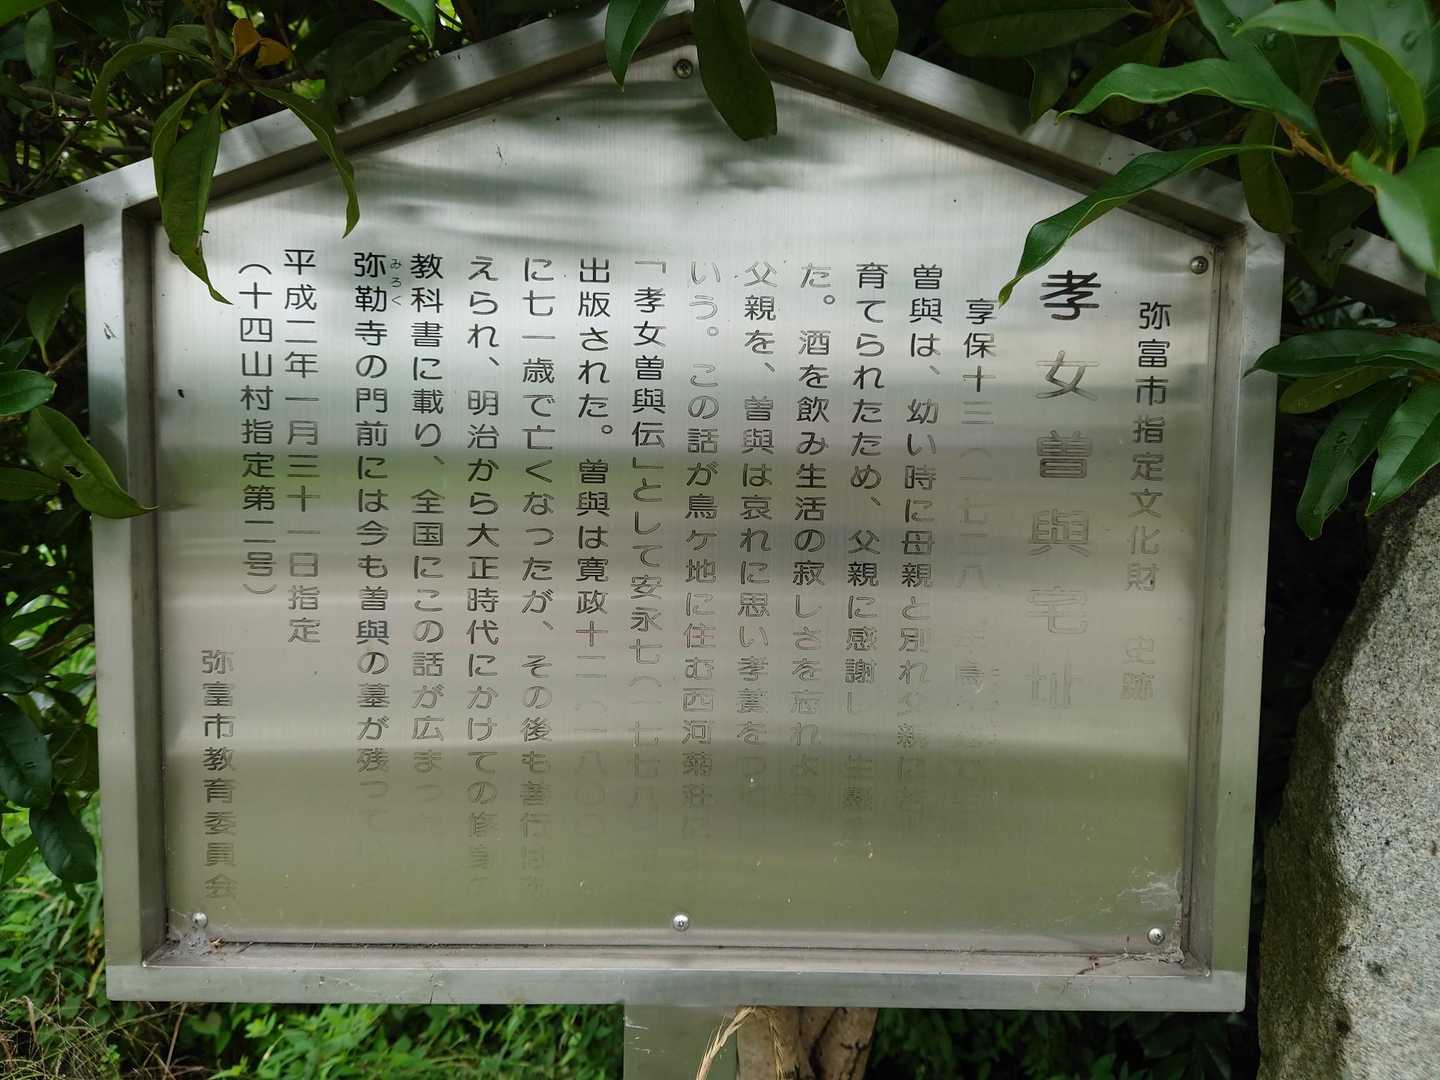 弥富市指定文化財 史跡
孝女曽與宅址
享保十三(一七二八)年鳥
曽與は、幼い時に母親と別れ父親に
育てられたため、父親に感謝し一生懸
た。酒を飲み生活の寂しさを忘れよう
父親を、曽與は哀れに思い孝養をつ
いう。この話が鳥ケ地に住む西河菊荘に
「孝女曽與伝」として安永七(一七七八
出版された。曽與は寛政十二(一八〇〇
に七一歳で亡くなったが、その後も善行は
えられ、明治から大正時代にかけての修身の
教科書に載り、全国にこの話が広まっ
弥勒寺の門前には今も曽與の墓が残って
みろく
平成二年一月三十一日指定
(十四山村指定第二号)
弥富市教育委員会